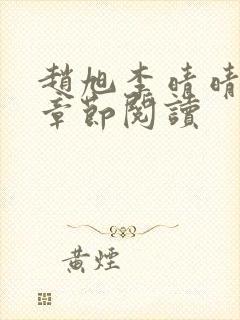 趙旭李晴晴
章節閱讀
黃煙